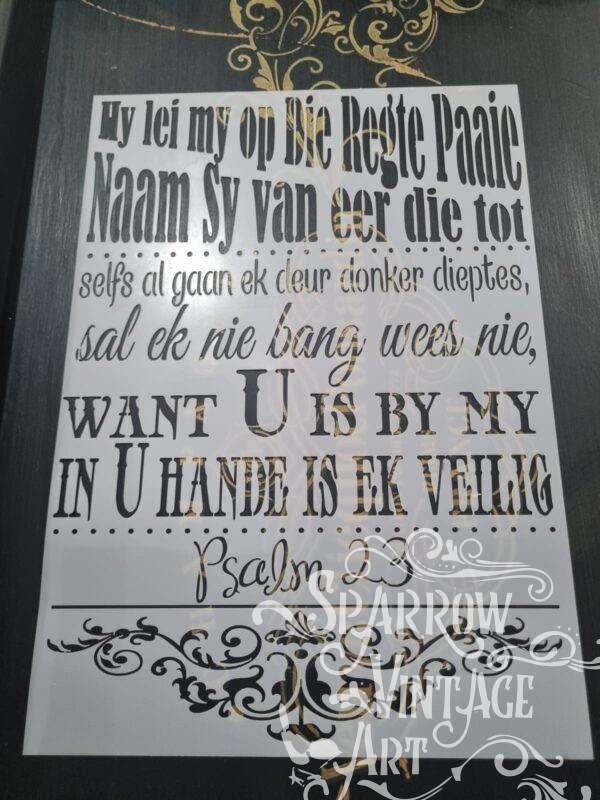 Hy lei my op Die Regte Paaie
Naam Sy van eer die tot
selfs al gaan ek deur donker dieptes,
sal ek nie bang wees nie,
WANT U IS BY MY
IN U HANDE IS EK VEILIG
Psalm 23
SPARROW
VINTAGE
ART